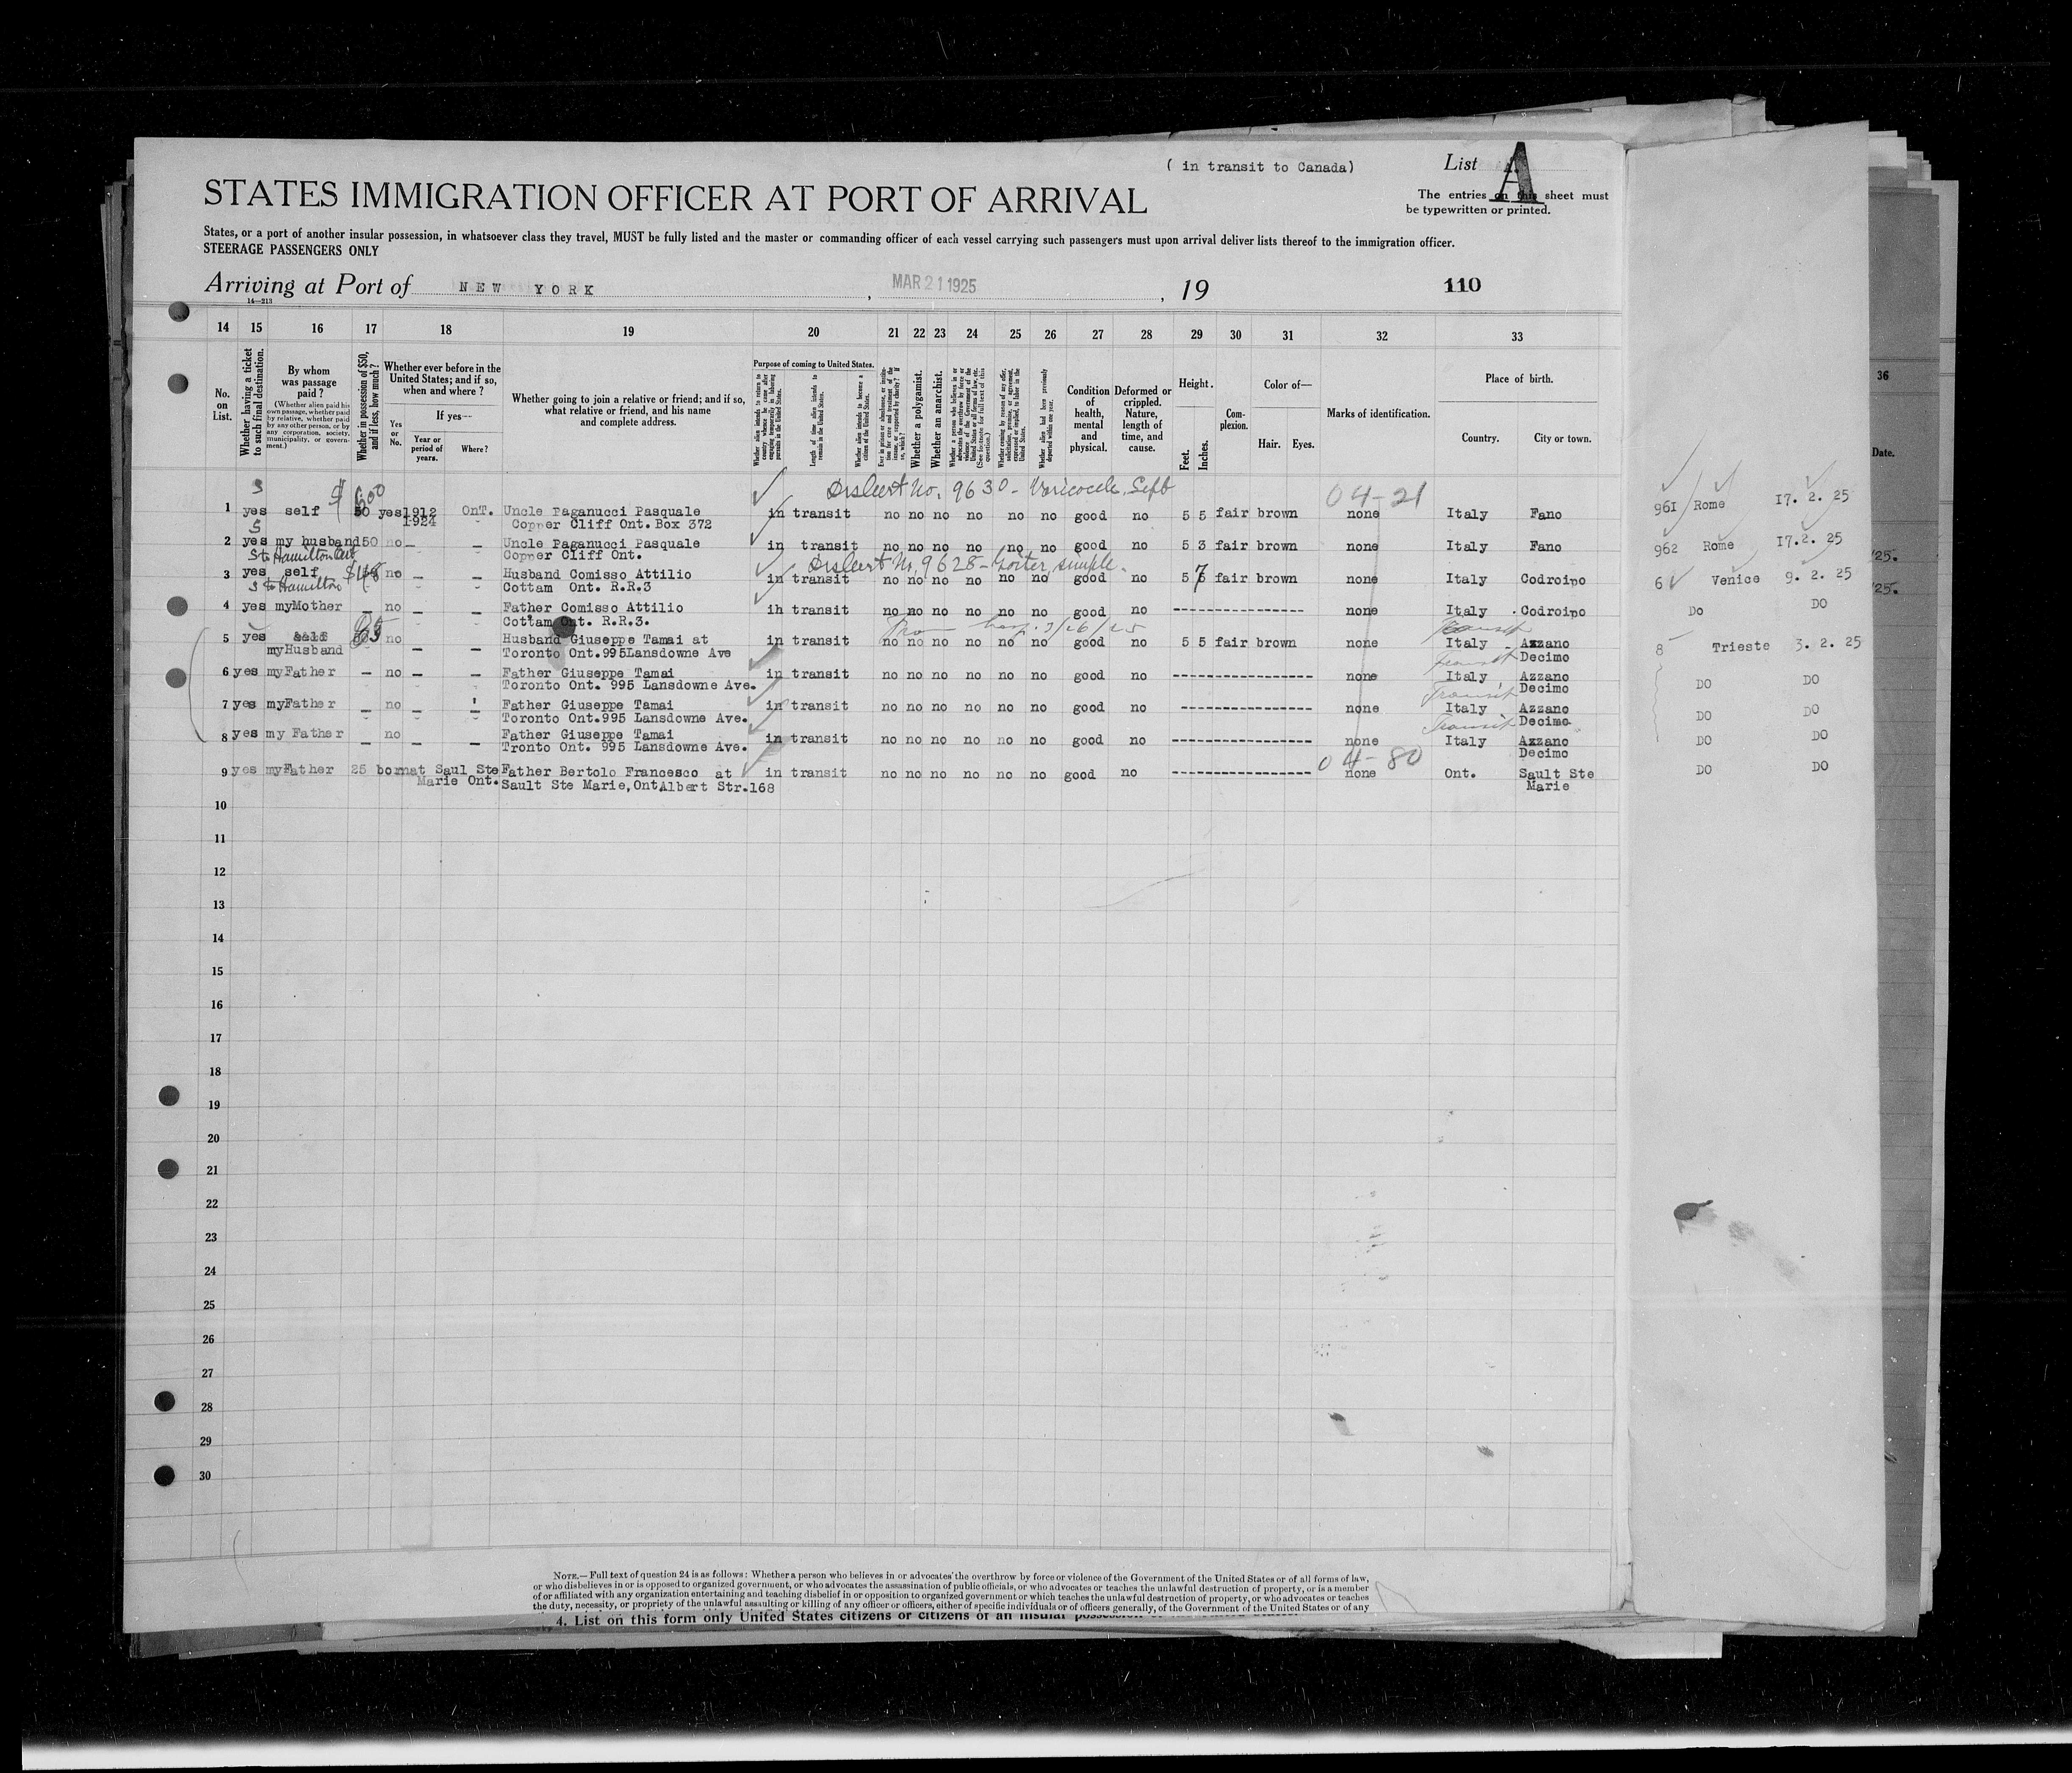 ( in transit to Canada)
List A
STATES IMMIGRATION OFFICER AT PORT OF ARRIVAL
The entries on this sheet must
be typewritten or printed.
States, or a port of another insular possession, in whatsoever class they travel, MUST be fully listed and the master or commanding officer of each vessel carrying such passengers must upon arrival deliver lists thereof to the immigration officer.
STEERAGE PASSENGERS ONLY
Arriving at Port of NEW YORK , MAR 21 1925 , 19 110
14—213
14 15 16 17 18 19 20 21 22 23 24 25 26 27 28 29 30 31 32 33
36
No. on List.
Whether having a ticket to such final destination.
By whom was passage paid ?
(Whether alien paid his own passage, whether paid by relative, whether paid by any other person, or by any corporation, society, municipality, or government.)
Whether in possession of $50, and if less, how much ?
Whether ever before in the United States; and if so, when and where ?
Yes or No.
If yes—
Year or period of years.
Where ?
Whether going to join a relative or friend; and if so, what relative or friend, and his name and complete address.
Purpose of coming to United States.
Whether alien intends to return to country whence he came after engaging temporarily in laboring pursuits in the United States.
Length of time alien intends to remain in the United States.
Whether alien intends to become a citizen of the United States.
Whether a polygamist.
Whether an anarchist.
Condition of health, mental and physical.
Deformed or crippled. Nature, length of time, and cause.
Height.
Feet.
Inches.
Complexion.
Color of—
Hair. Eyes.
Marks of identification.
Place of birth.
Country.
City or town.
Date.
Discert No. 9630 - Varicocele, Left
04-21
1 yes self $ 600 50 yes 1912 OnT. Uncle Paganucci Pasquale in transit no no no no no no good no 5 5 fair brown none Italy Fano 961 Rome 17. 2. 25
1924 Copper Cliff Ont. Box 372
2 yes my husband 50 no – – Uncle Paganucci Pasquale in transit no no no no no no good no 5 3 fair brown none Italy Fano 962 Rome 17.2. 25
S to Hamilton Ont Copper Cliff Ont. Discert No, 9628 - Goiter, simple.
3 yes self $48 no – – Husband Comisso Attilio in transit no no no no no no good no 5 7 fair brown none Italy Codroipo 6 Venice 9. 2. 25
S to Hamilton Cottam Ont. R.R.3
4 yes myMother – no – – Father Comisso Attilio ih transit no no no no no no good no ---------------- none Italy Codroipo Do DO
Cottam Ont. R.R.3.
5 yes self no – – Husband Giuseppe Tamai at in transit no no no no no no good no 5 5 fair brown none Italy Azzano 8 Trieste 3. 2. 25
myHusband Toronto Ont.995Lansdowne Ave Decimo
Transit
6 yes myFather – no – – Father Giuseppe Tamai in transit no no no no no no good no ---------------- none Italy Azzano DO DO
Toronto Ont. 995 Lansdowne Ave. Decimo
Transit
7 yes myFather – no – – Father Giuseppe Tamai in transit no no no no no no good no ---------------- none Italy Azzano DO DO
Toronto Ont.995 Lansdowne Ave. Decimo
Transit
8 yes my Father – no – – Father Giuseppe Tamai in transit no no no no no no good no ---------------- none Italy Azzano DO DO
Tronto Ont. 995 Lansdowne Ave. Decimo
04-80
9 yes myFather 25 bornat Saul Ste Father Bertolo Francesco at in transit no no no no no no good no ---------------- none Ont. Sault Ste DO DO
Marie Ont. Sault Ste Marie,Ont Albert Str.168 Marie
10
11
12
13
14
15
16
17
18
19
20
21
22
23
24
25
26
27
28
29
30
NOTE.—Full text of question 24 is as follows: Whether a person who believes in or advocates the overthrow by force or violence of the Government of the United States or of all forms of law,
or who disbelieves in or is opposed to organized government, or who advocates the assassination of public officials, or who advocates or teaches the unlawful destruction of property, or is a member
of or affiliated with any organization entertaining and teaching disbelief in or opposition to organized government or which teaches the unlawful destruction of property, or who advocates or teaches
the duty, necessity, or propriety of the unlawful assaulting or killing of any officer or officers, either of specific individuals or of officers generally, of the Government of the United States or of any
4. List on this form only United States citizens or citizens of an insular possession